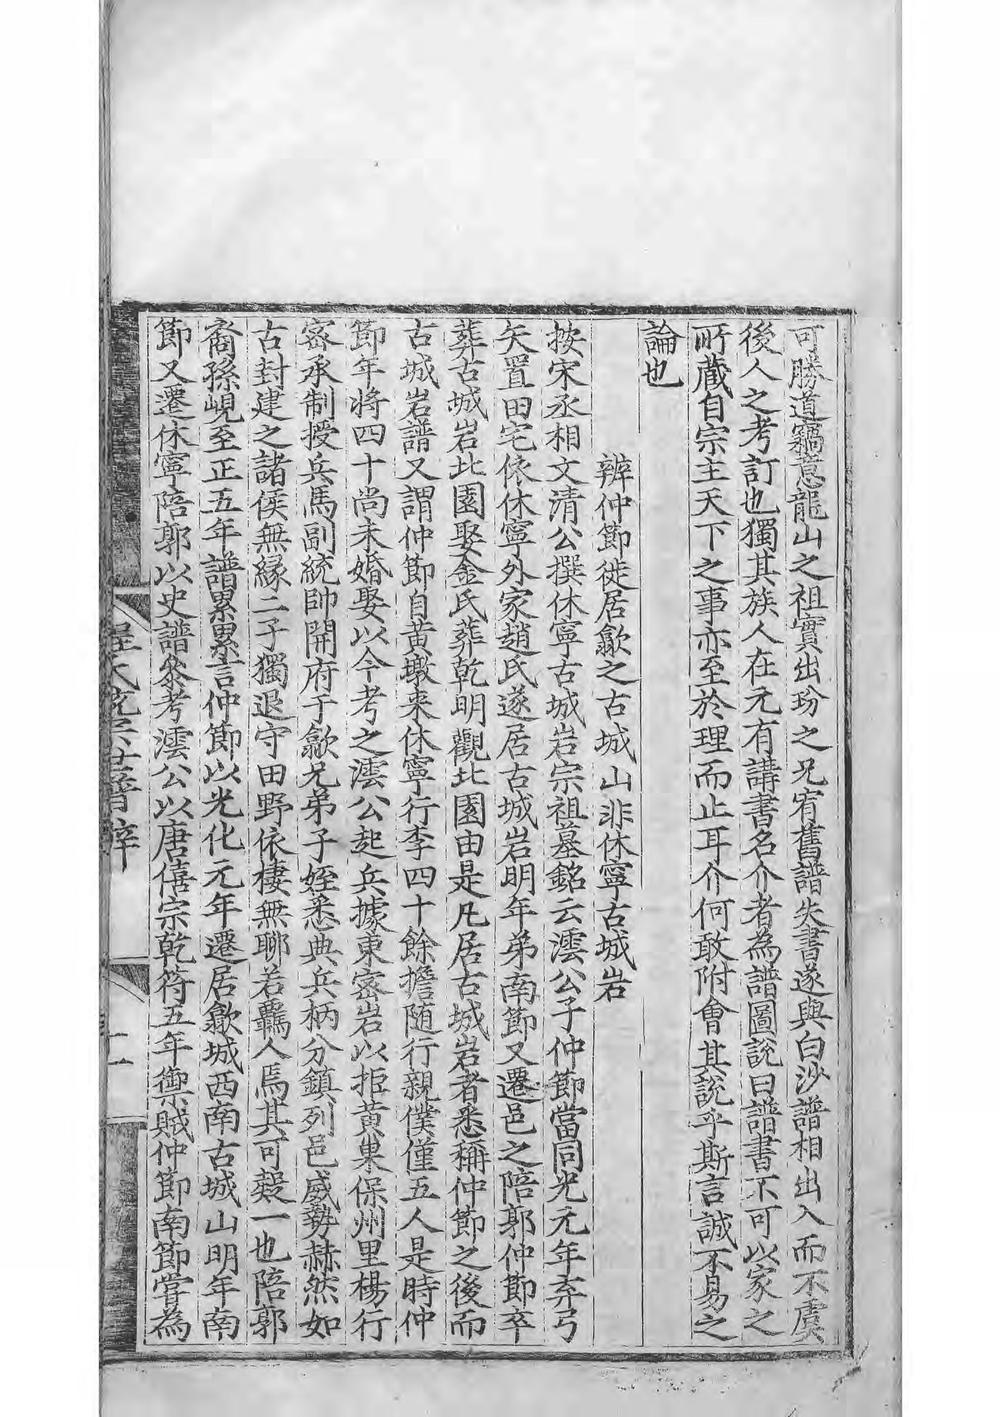 可勝道竊意龍山之祖實出玢之兄宥舊譜失書遂與白沙譜相出入而不虞
後人之考訂也獨其族人在元有講書名介者為譜圖說曰譜書不可以家之
所蔵自宗主天下之事亦至於理而止耳介何敢附會其說乎斯言誠不易之
論也
辨仲節徙居歙之古城山非休寧古城岩
按宋丞相文清公撰休寧古城岩宗祖墓銘云澐公子仲節當同光元年弃弓
矢置田宅依休寧外家趙氏遂居古城岩明年弟南節又遷邑之陪郭仲節卒
葬古城岩北園娶金氏葬乾明觀北園由是凡居古城岩者悉稱仲節之後而
古城岩譜又謂仲節自黃墩来休寧行李四十餘擔随行親僕僅五人是時仲
節年将四十尚未婚娶以今考之澐公起兵據東密岩以拒黃巢保州里楊行
密承制授兵馬副統帥開府于歙兄弟子姪悉典兵柄分鎮列邑威勢赫然如
古封建之諸侯無緣二子獨退守田野依棲無聊若羈人焉其可疑一也陪郭
裔孫峴至正五年譜累累言仲節以光化元年遷居歙城西南古城山明年南
節又遷休寧陪郭以史譜叅考澐公以唐僖宗乾符五年禦賊仲節南節嘗為